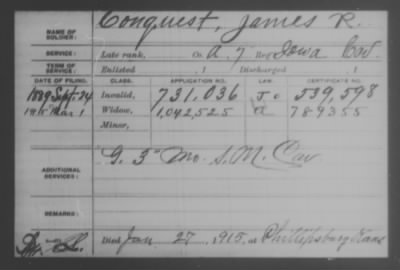 NAME OF SOLDIER: Conquest, James R.
SERVICE: Late rank, Co. A, 7 Reg Iowa Cav.
TERM OF SERVICE: Enlisted , 1 Discharged , 1
DATE OF FILING. CLASS. APPLICATION NO. LAW. CERTIFICATE NO.
1889 Sept. 24 Invalid, 731,036 539,598
1915 Mar 1 Widow, 1,042,525 789355
Minor,
ADDITIONAL SERVICES: G. 3" Mo. S.M. Cav
REMARKS:
Died Jan 27, 1915, at Phillipsburg Kans